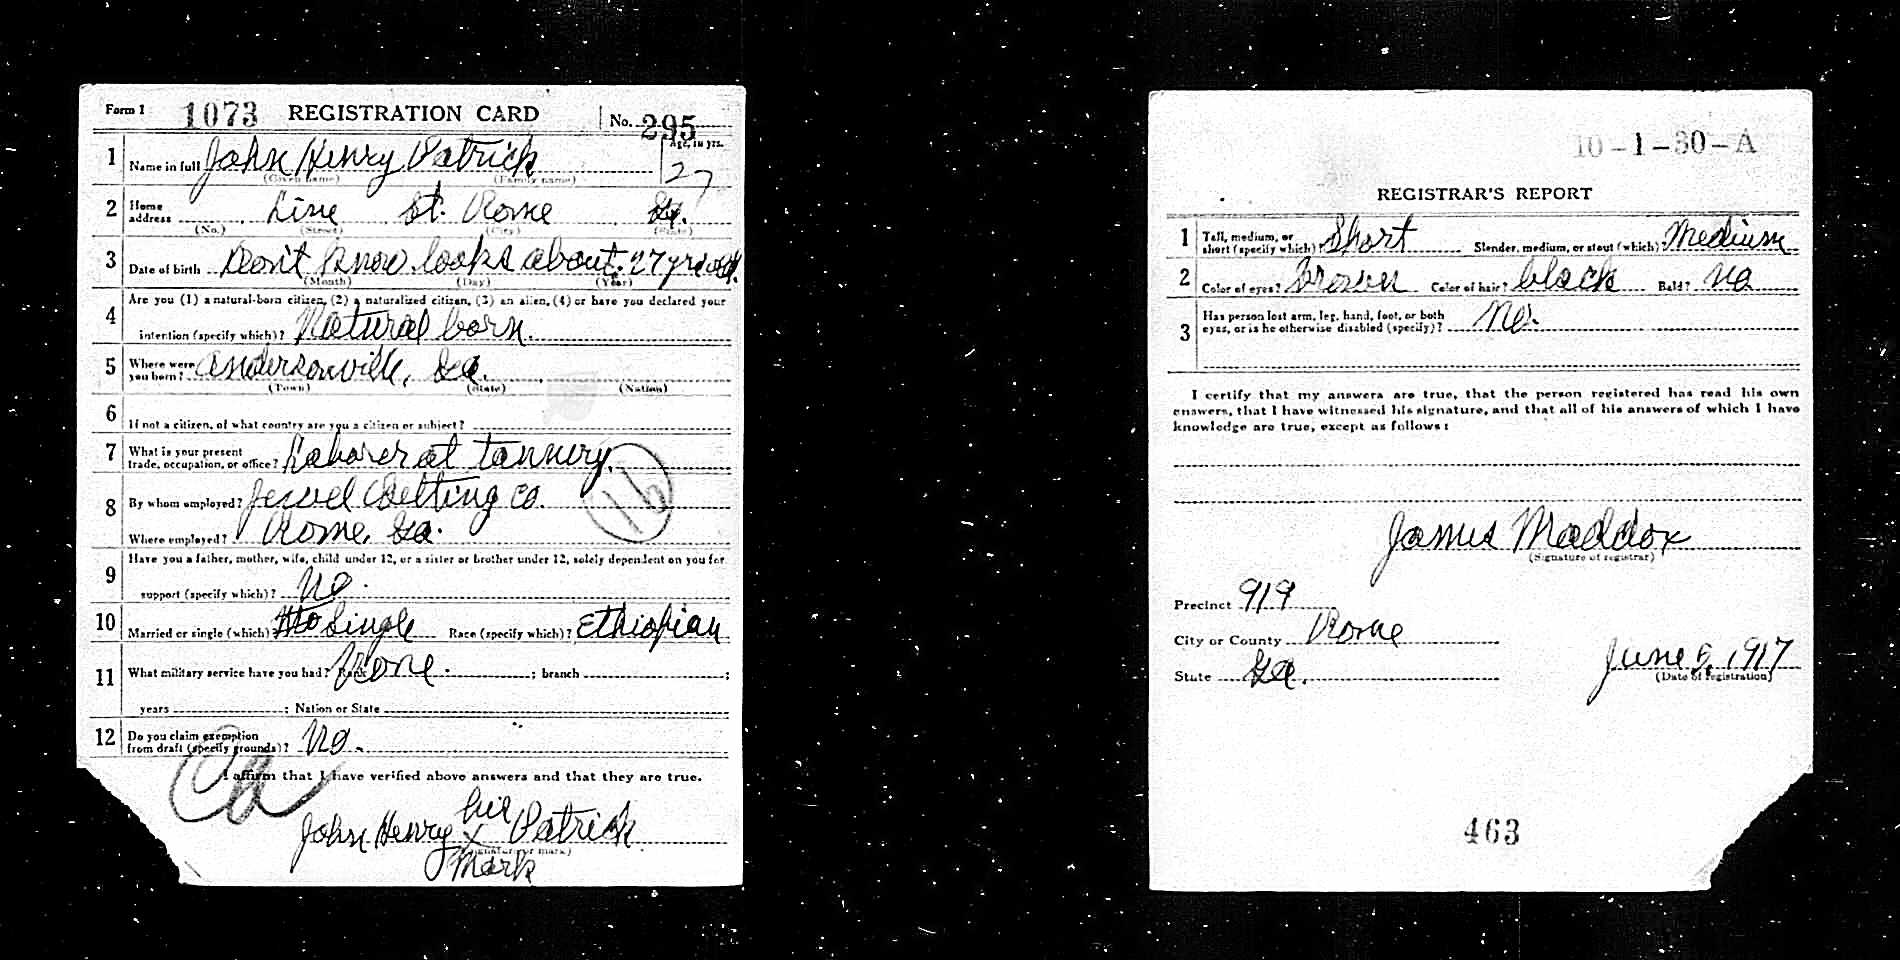 Form 1 1073 REGISTRATION CARD No. 295
1 Name in full John Henry Patrick Age, in yrs. 27
(Given name) (Family name)
2 Home address Line St. Rome Ga.
(No.) (Street) (City) (State)
3 Date of birth Don't know looks about 27 yrs old.
(Month) (Day) (Year)
4 Are you (1) a natural-born citizen, (2) a naturalized citizen, (3) an alien, (4) or have you declared your
intention (specify which)? Natural born.
5 Where were you born? Andersonville, Ga.
(Town) (State) (Nation)
6 If not a citizen, of what country are you a citizen or subject?
7 What is your present trade, occupation, or office? Laborer at tannery.
8 By whom employed? Jewel Belting Co.
Where employed? Rome, Ga.
16
9 Have you a father, mother, wife, child under 12, or a sister or brother under 12, solely dependent on you for
support (specify which)? No.
10 Married or single (which)? Single Race (specify which)? Ethiopian
11 What military service have you had? Rank None. ; branch ;
years ; Nation or State
12 Do you claim exemption from draft (specify grounds)? No.
I affirm that I have verified above answers and that they are true.
his
John Henry x Patrick
(Signature or mark)
Mark
10-1-30-A
REGISTRAR'S REPORT
1 Tall, medium, or short (specify which)? Short Slender, medium, or stout (which)? Medium
2 Color of eyes? Brown Color of hair? black Bald? No
3 Has person lost arm, leg, hand, foot, or both eyes, or is he otherwise disabled (specify)? No.
I certify that my answers are true, that the person registered has read his own
answers, that I have witnessed his signature, and that all of his answers of which I have
knowledge are true, except as follows:
James Maddox
(Signature of registrar)
Precinct 919
City or County Rome
State Ga.
June 5, 1917
(Date of registration)
463